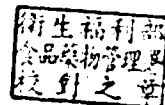 衞生福利部
食品藥物管理署
校對之章